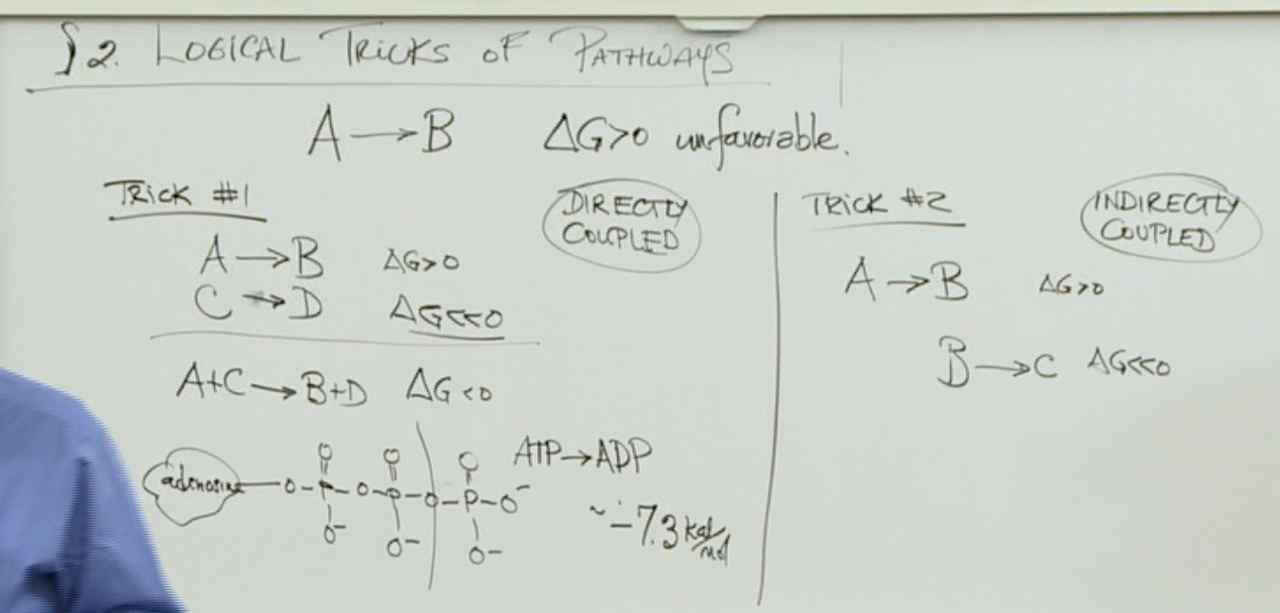 § 2. LOGICAL TRICKS OF PATHWAYS
A → B ΔG>0 unfavorable.
TRICK #1 DIRECTLY COUPLED
A → B ΔG>0
C → D ΔG<<0
A+C → B+D ΔG<0
ATP → ADP
O O O
adenosine—O-P-O-P-O-P-O⁻
O⁻ O⁻ O⁻
~ -7.3 kcal/mol
TRICK #2 INDIRECTLY COUPLED
A → B ΔG>0
B → C ΔG<<0